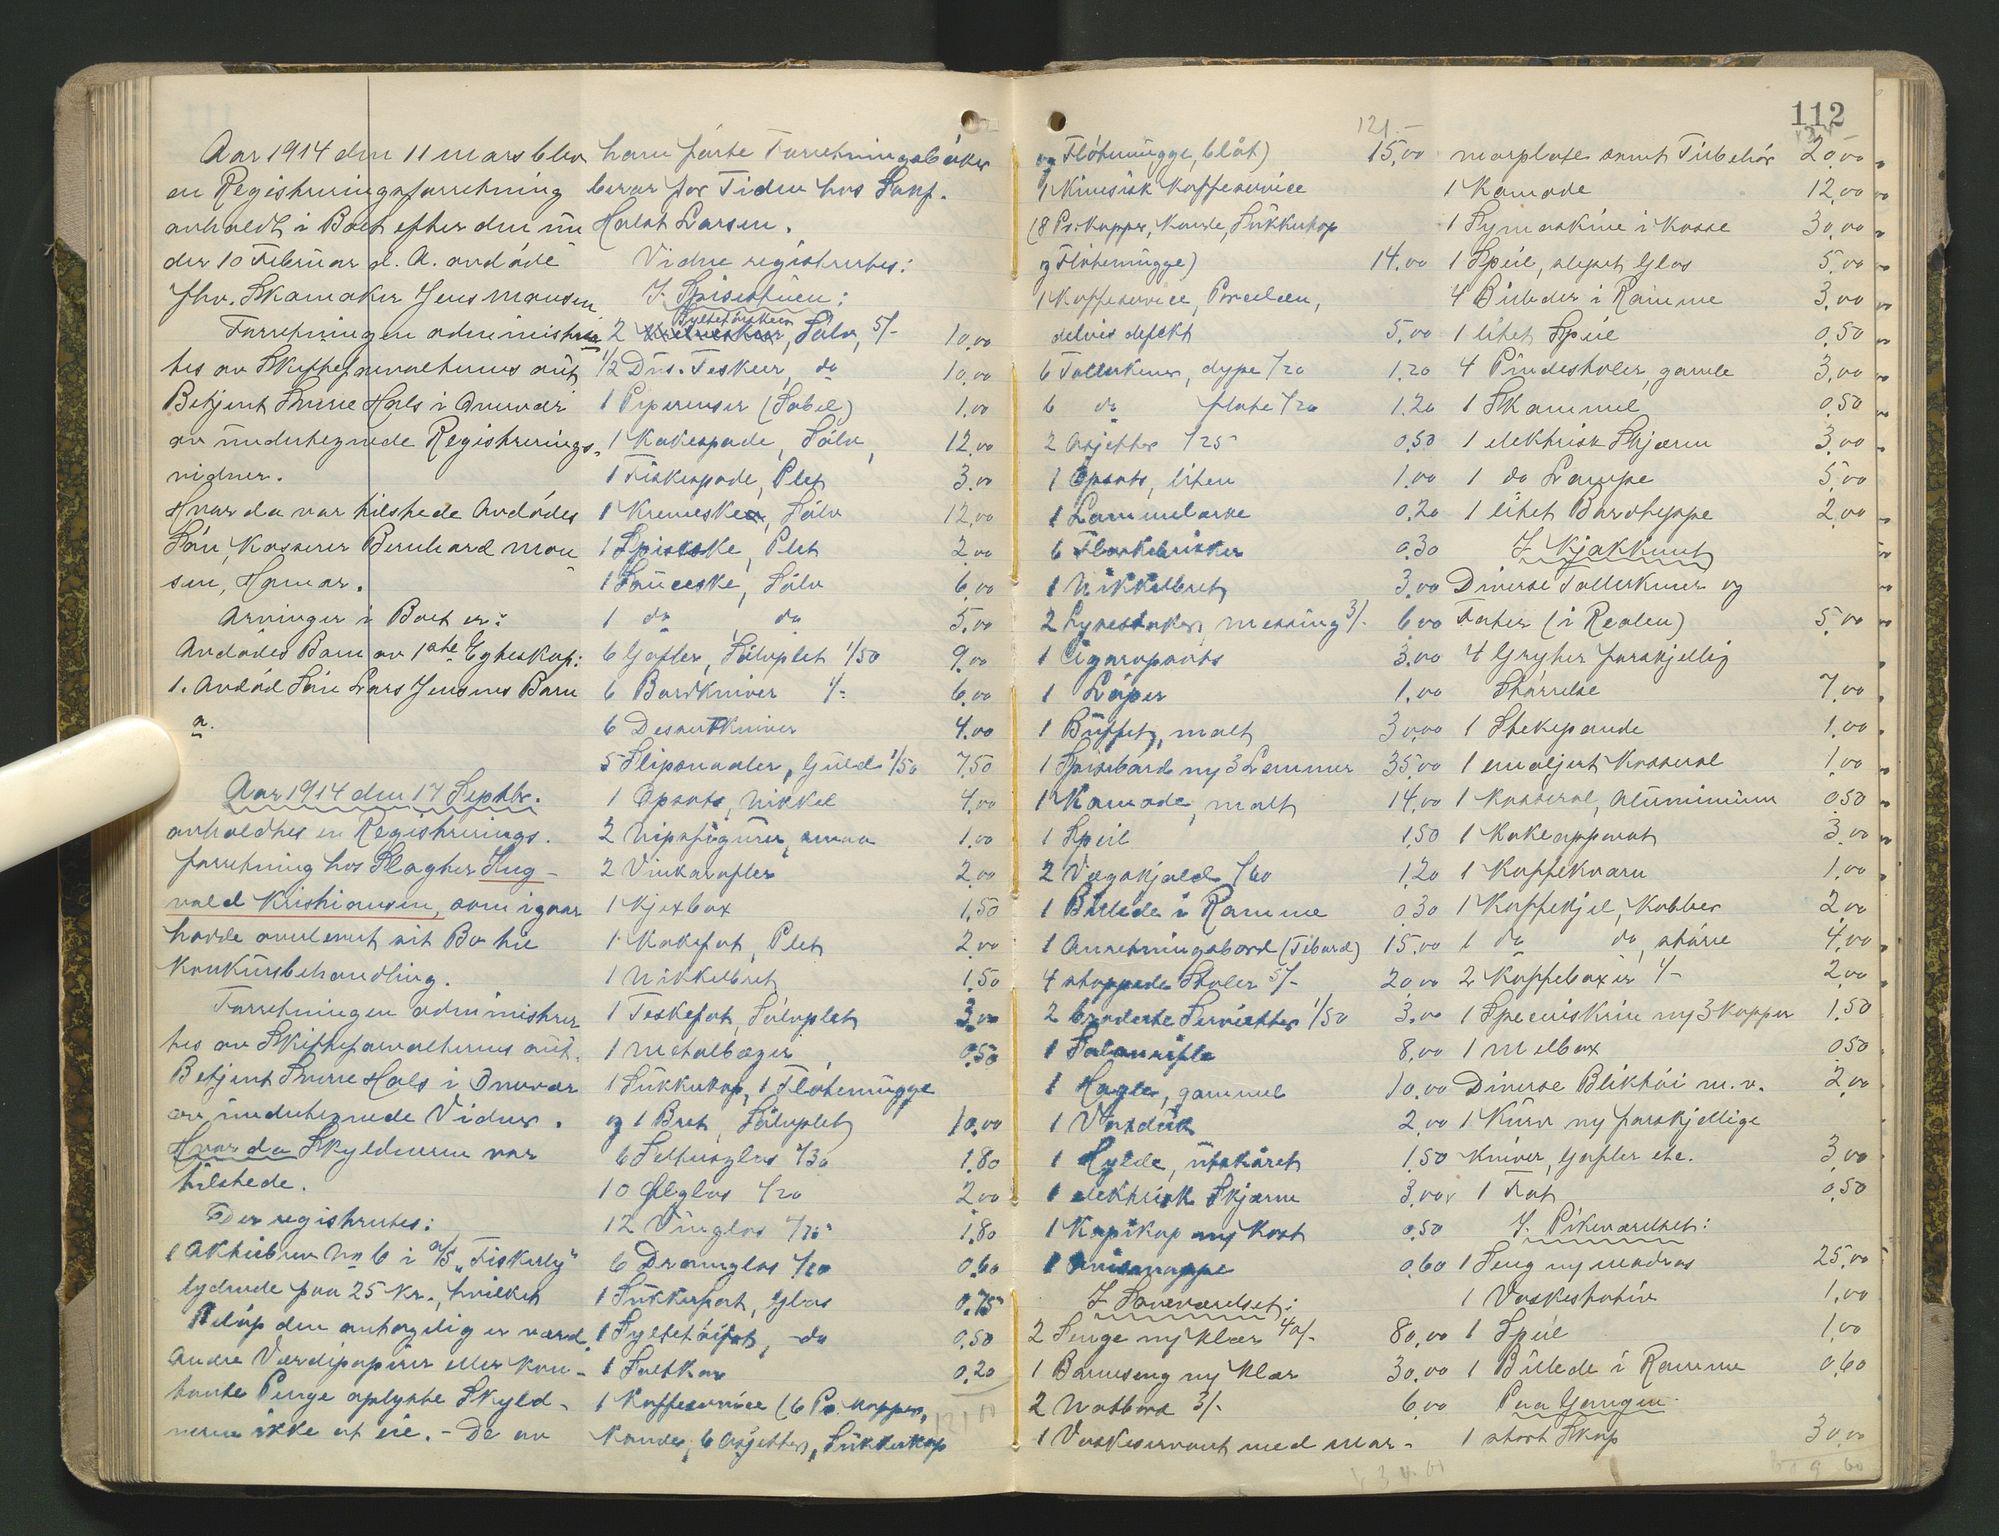 112
Aar 1914 den 11 mars blev
en Registreringsforretning
avholdt i Boet efter den un
der 10 Februar d. A. avdöde
fhv. Skomaker Jens Monsen
Forretningen administrer
tes av Skifteforvalterens aut.
Betjent Sverre Hals i Overvær
av undertegnede Registrerings-
vidner.
Hvor da var tilstede Avdödes
Sön, Kasserer Bernhard Mon
sen, Hamar.
Arvinger i Boet er:
Avdödes Barn av 1ste Egteskap:
1. Avdöd Sön Lars Jensens Barn
a.
Aar 1914 den 17 Septbr.
avholdtes en Registrerings-
forretning hos Slagter Sig-
vald Kristiansen, som igaar
havde overlevert sit Bo til
Konkursbehandling.
Forretningen administrer
tes av Skifteforvalterens aut.
Betjent Sverre Hals i Overvær
av undertegnede Vidner.
Hvor da Skyldneren var
tilstede.
Der registrertes:
1 Aktiebrev No 6 i A/S "Fiskerly"
lydende paa 25 Kr., hvilket
Belöp den antagelig er værd.
Andre Værdipapirer eller kon-
tante Penge oplyste Skyld-
neren ikke at eie. - De av
ham förte Forretningsböker
beror for Tiden hos Sakf.
Holst Larsen.
Videre registrertes:
I Spisestuen:
2 Syltetöiskeer, Sölv, 5/- 10,00
1/2 Dus. Teskeer, do 10,00
1 Piperenser (Sabel) 1,00
1 Kakespade, Sölv, 12,00
1 Fiskespade, Plet 3,00
1 Kremeske, Sölv 12,00
1 Spiseske, Plet 2,00
1 Sauceske, Sölv 6,00
1 do do 5,00
6 Gafler, Sölvplet 1/50 9,00
6 Bordkniver 1/- 6,00
6 Desertkniver 4,00
5 Slipsnaaler, Guld 1/50 7,50
1 Opsats, Nikkel 4,00
2 Nipsfigurer, smaa 1,00
2 Vinkarafler 2,00
1 Kjexbox 1,50
1 Kakefat, Plet 2,00
1 Nikkelbret 1,50
1 Teskefat, Sölvplet 3,00
1 Metalbæger 0,50
1 Sukkerkop, 1 Flötemugge
og 1 Bret, Sölvplet 10,00
6 Seltersglas /30 1,80
10 Ölglas /20 2,00
12 Vinglas /15 1,80
6 Dramglas /10 0,60
1 Sukkerfat, Glas 0,75
1 Syltetöifat, do 0,50
1 Saltkar 0,20
1 Kaffeservice (6 Pr. Kopper,
Kande, 6 Asjetter, Sukkerkop
121,00
121 -
og Flötemugge, blåt) 15,00
1 Kinesisk Kaffeservice
(8 Pr. Kopper, Kande, Sukkerkop
og Flötemugge) 14,00
1 Kaffeservice, Porcelæn,
delvis defekt 5,00
6 Tallerkener, dype /20 1,20
6 do flate /20 1,20
2 Asjetter /25 0,50
1 Opsats, liten 1,00
1 Lommelærke 0,20
6 Flaskebrikker 0,30
1 Nikkelbret 3,00
2 Lysestaker, messing 3/- 6,00
1 Cigaropsats 3,00
1 Löper 1,00
1 Buffet, malt 30,00
1 Spisebord m/ 3 Lemmer 35,00
1 Komode, malt 14,00
1 Speil 1,50
2 Vægskjold /60 1,20
1 Billede i Ramme 0,30
1 Anretningsbord (Tebord) 15,00
4 stoppede Stoler 5/- 20,00
2 broderte Servietter 1/50 3,00
1 Salonrifle 8,00
1 Hagle, gammel 10,00
1 Voxduk 2,00
1 Hylde, utskåret 1,50
1 elektrisk Skjærm 3,00
1 Kopikop m/ Kost 0,50
1 Avismappe 0,60
I Soveværelset:
2 Senge m/ Klær 40/- 80,00
1 Barneseng m/ Klær 30,00
2 Natbord 3/- 6,00
1 Vaskeservant med mar-
434,00
morplate samt Tilbehör 20,00
1 Komode 12,00
1 Symaskine i Kasse 30,00
1 Speil, slepet Glas 5,00
4 Billeder i Ramme 3,00
1 litet Speil 0,50
4 Pindestoler, gamle 3,00
1 Skammel 0,50
1 elektrisk Skjærm 3,00
1 do Lampe 5,00
1 litet Bordteppe 2,00
I Kjökkenet
Diverse Tallerkener og
Fater (i Reolen) 5,00
4 Gryter forskjellig
Störrelse 7,00
1 Stekepande 1,00
1 emaljert Kasserol 1,00
1 Kasserol, Aluminium 0,50
1 Kokeapparat 3,00
1 Kaffekværn 1,00
1 Kaffekjel, Kobber 2,00
1 do do, större 4,00
2 Kaffeboxer 1/- 2,00
1 Speceriskrin m/ 3 Kopper 1,50
1 Melbox 0,50
Diverse Bliktöi m.v. 2,00
1 Kurv m/ forskjellige
Kniver, Gafler etc. 3,00
1 Fat 0,50
I Pikeværelset:
1 Seng m/ Madras 25,00
1 Vaskestativ 1,00
1 Speil 1,00
1 Billede i Ramme 0,60
Paa Gangen
1 stort Skap 30,00